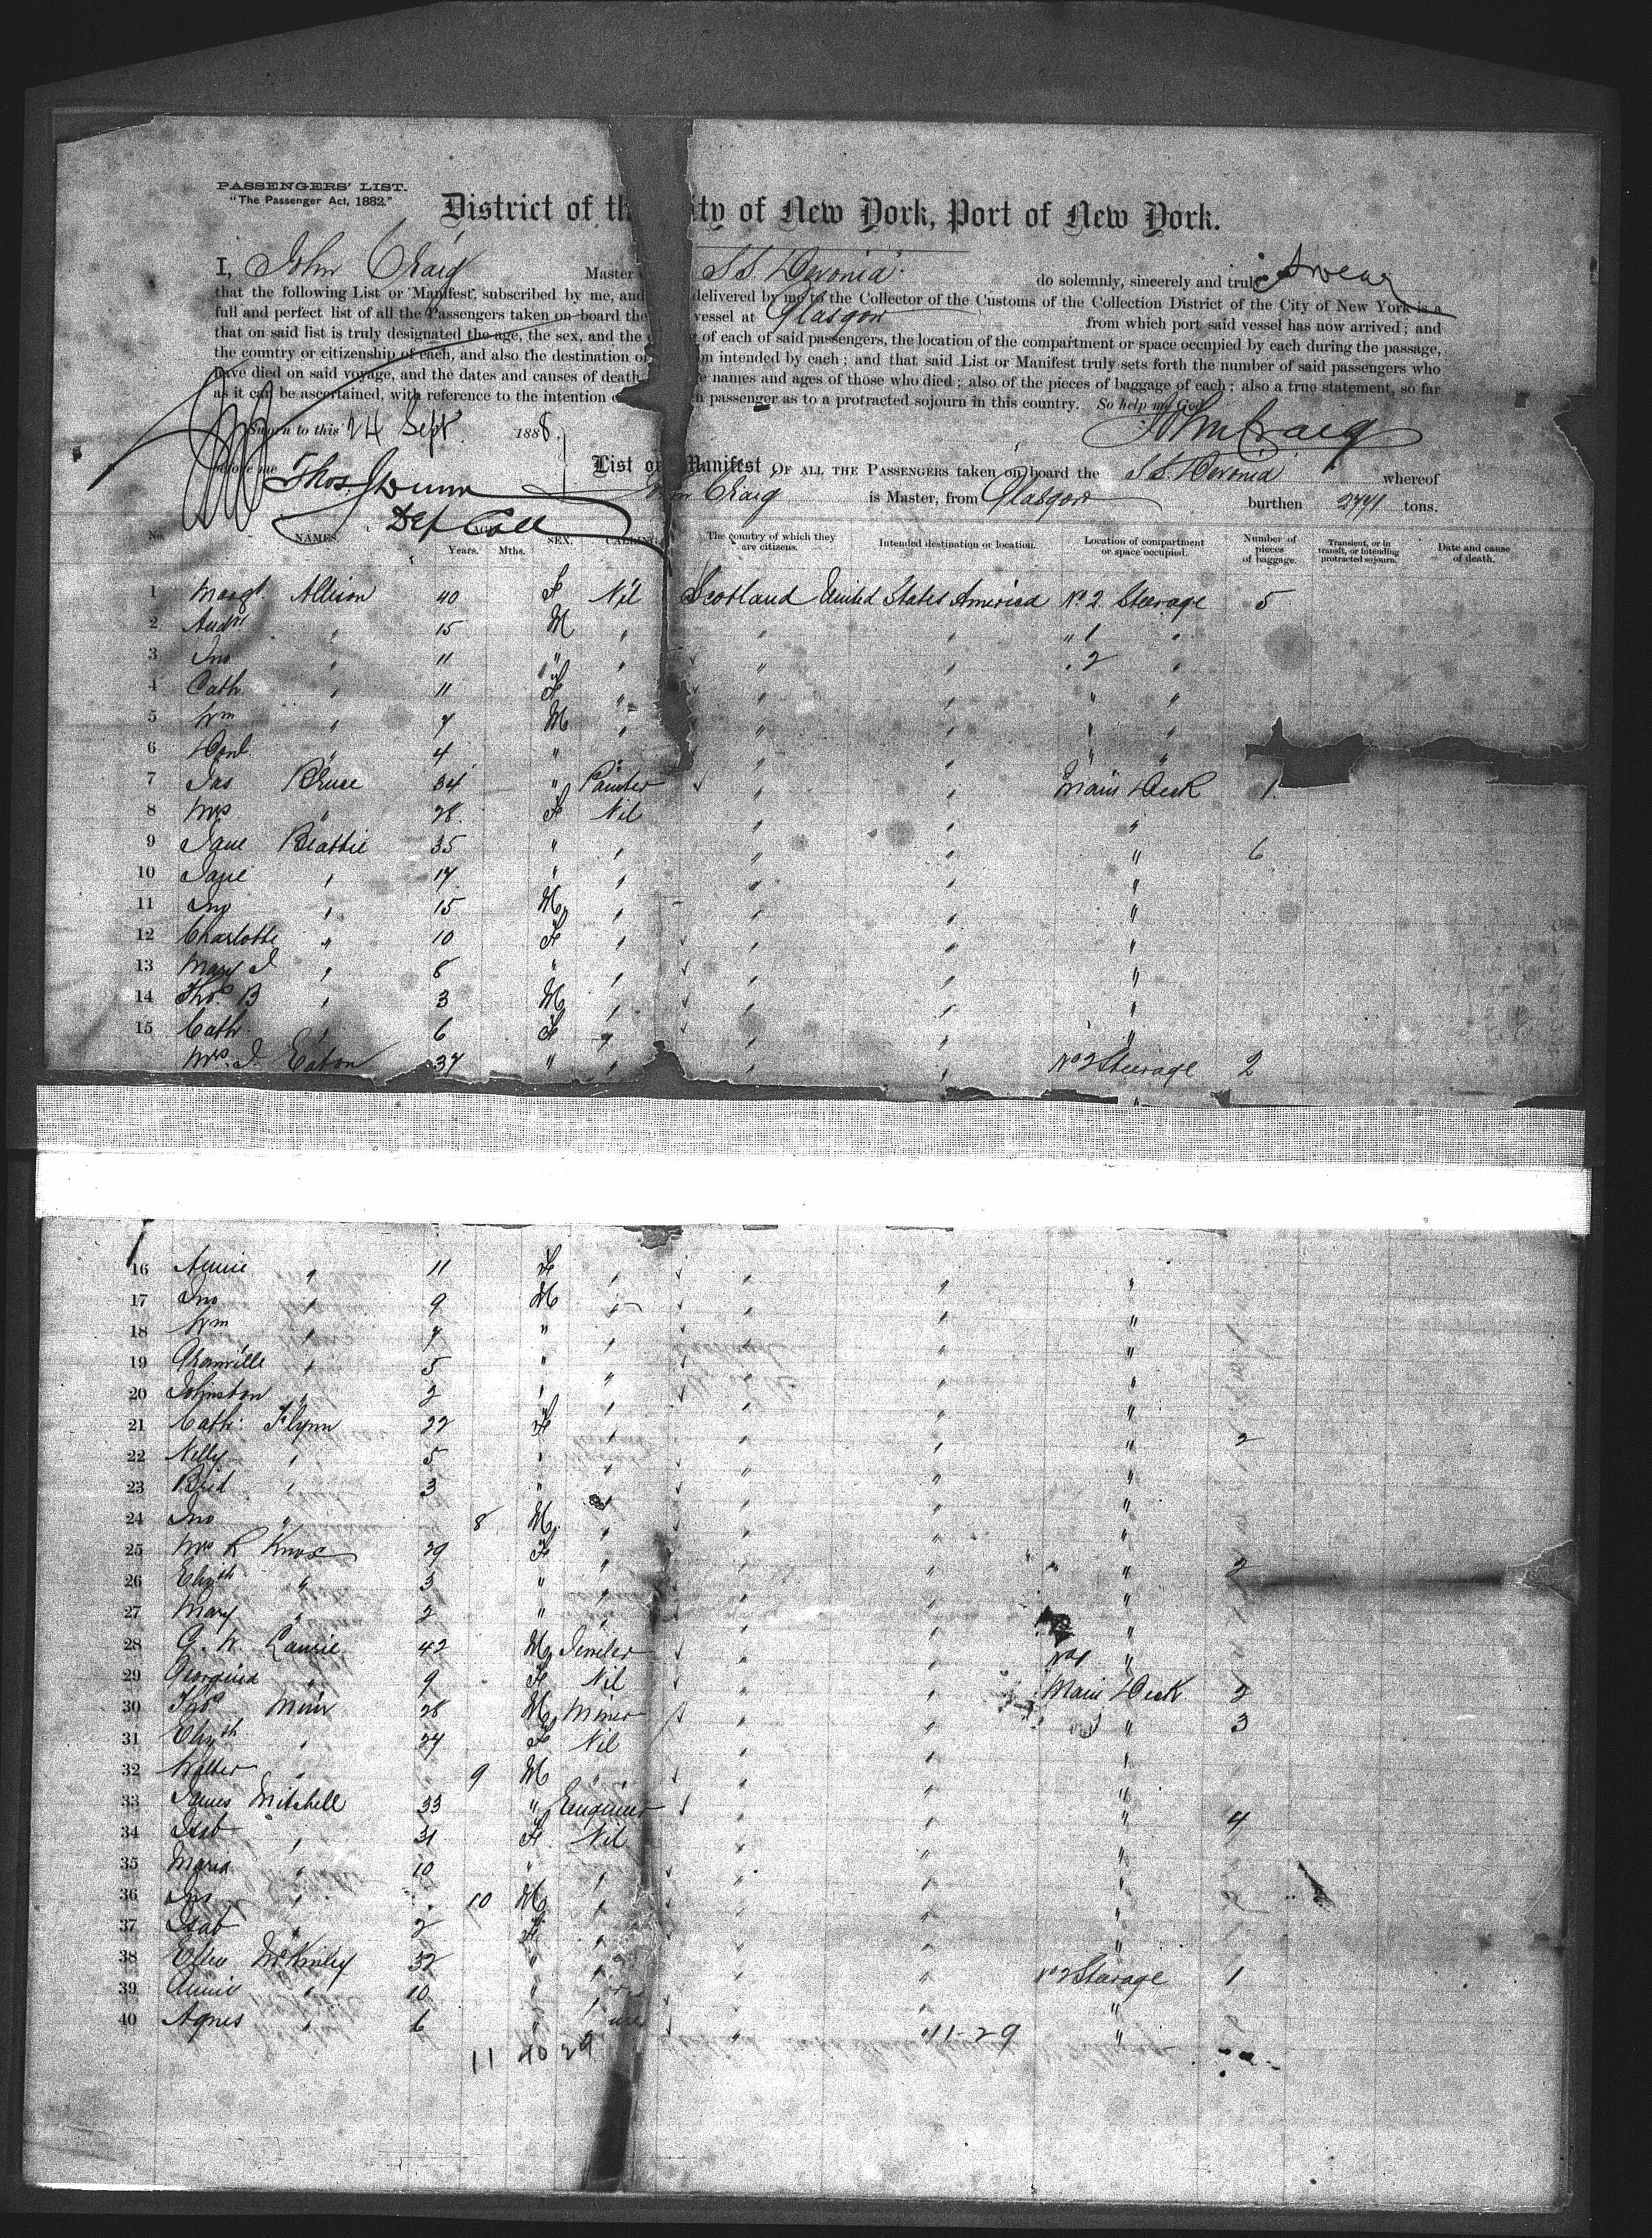 PASSENGERS' LIST.
"The Passenger Act, 1882."
District of th ity of New York, Port of New York.
I, John Craig Master S.S. Devonia do solemnly, sincerely and truly Swear
that the following List or Manifest, subscribed by me, and delivered by me to the Collector of the Customs of the Collection District of the City of New York is a
full and perfect list of all the Passengers taken on board the vessel at Glasgow from which port said vessel has now arrived; and
that on said list is truly designated the age, the sex, and the g of each of said passengers, the location of the compartment or space occupied by each during the passage,
the country or citizenship of each, and also the destination or m intended by each; and that said List or Manifest truly sets forth the number of said passengers who
have died on said voyage, and the dates and causes of death e names and ages of those who died; also of the pieces of baggage of each; also a true statement, so far
as it can be ascertained, with reference to the intention o n passenger as to a protracted sojourn in this country. So help me God
Sworn to this 24 Sept 1888. John Craig
before me Thos. J Dunn
Dep Coll
List or Manifest OF ALL THE PASSENGERS taken on board the S.S. Devonia whereof
John Craig is Master, from Glasgow burthen 2771 tons.
No. NAMES. AGE Years. Mths. SEX. CALLING. The country of which they are citizens. Intended destination or location. Location of compartment or space occupied. Number of pieces of baggage. Transient, or in transit, or intending protracted sojourn. Date and cause of death.
1 Margt. Allison 40 F Nil Scotland United States America No. 2 Steerage 5
2 Andw " 15 M " " " " 1 "
3 Jno " 11 " " " " " 2 "
4 Cath " 11 F " " " " "
5 Wm " 7 M " " " " "
6 Donl " 4 " " " " " "
7 Jas Bruce 34 " Painter " " Main Deck 1
8 Mrs " 28 F Nil " " "
9 Jane Beattie 35 " " " " " 6
10 Jane " 17 " " " " "
11 Jno " 15 M " " " "
12 Charlotte " 10 F " " " "
13 Mary J " 8 " " " " "
14 Thos. B " 3 M " " " "
15 Cath " 6 F " " " "
Mrs. J. Eaton 37 " " " " No 2 Steerage 2
16 Annie " 11 F " " " "
17 Jno " 9 M " " " "
18 Wm " 7 " " " " "
19 Granville " 5 " " " " "
20 Johnston " 2 " " " " "
21 Cath: Flynn 22 F " " " " 2
22 Nelly " 5 " " " " "
23 Brid " 3 " " " " "
24 Jno " 8 M " " " "
25 Mrs R Knox 29 F " " " " 2
26 Elizth " 3 " " " " "
27 Mary " 2 " " " " "
28 G. W. Laurie 42 M Jeweler " " No 1 "
29 Georgina " 9 F Nil " " Main Deck 2
30 Thos Muir 28 M Miner " " " 3
31 Elizth " 24 F Nil " " "
32 Walter " 9 M " " " "
33 James Mitchell 33 " Engineer " " " 4
34 Isab " 31 F Nil " " "
35 Maria " 10 " " " " "
36 Jno " 10 M " " " "
37 Isab " 2 F " " " "
38 Ellen McKinley 32 " " " " No 2 Steerage 1
39 Annie " 10 " " " " "
40 Agnes " 6 " " " " "
11 40 29 11-29